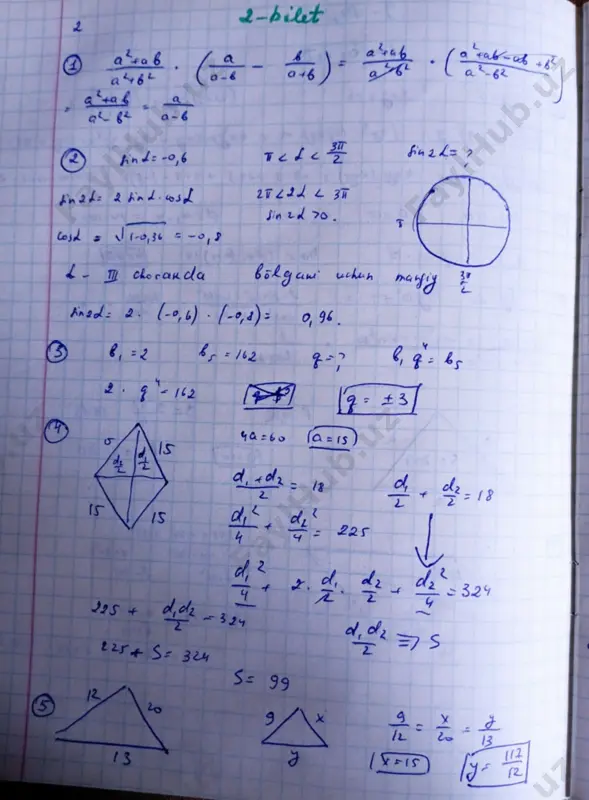 2
2-bilet
① (a²+ab)/(a²+b²) · (a/(a-b) - b/(a+b)) = (a²+ab)/(a²+b²) · ((a²+ab-ab+b²)/(a²-b²))
= (a²+ab)/(a²-b²) = a/(a-b)
② sinα=-0,6 π < α < 3π/2 sin2α= ?
sin2α= 2 sinα·cosα 2π<2α < 3π
sin2α>0.
cosα = √(1-0,36) = -0,8 π
α - III chorakda bõlgani uchun manfiy 3π/2
sin2α= 2· (-0,6) · (-0,8)= 0,96.
③ b₁=2 b₅=162 q=? b₁q⁴=b₅
2·q⁴=162 q= ±3
④ 4a=60 a=15
15 d₁/2 d₂/2
(d₁+d₂)/2 = 18 d₁/2 + d₂/2 = 18
15 15
d₁²/4 + d₂²/4 = 225
d₁²/4 + 2·d₁/2·d₂/2 + d₂²/4 = 324
225 + d₁d₂/2 = 324
d₁d₂/2 => S
225+S= 324
S= 99
⑤ 12 20 9 x 9/12 = x/20 = y/13
13 y x=15 y= 117/12
FaylHub.uz